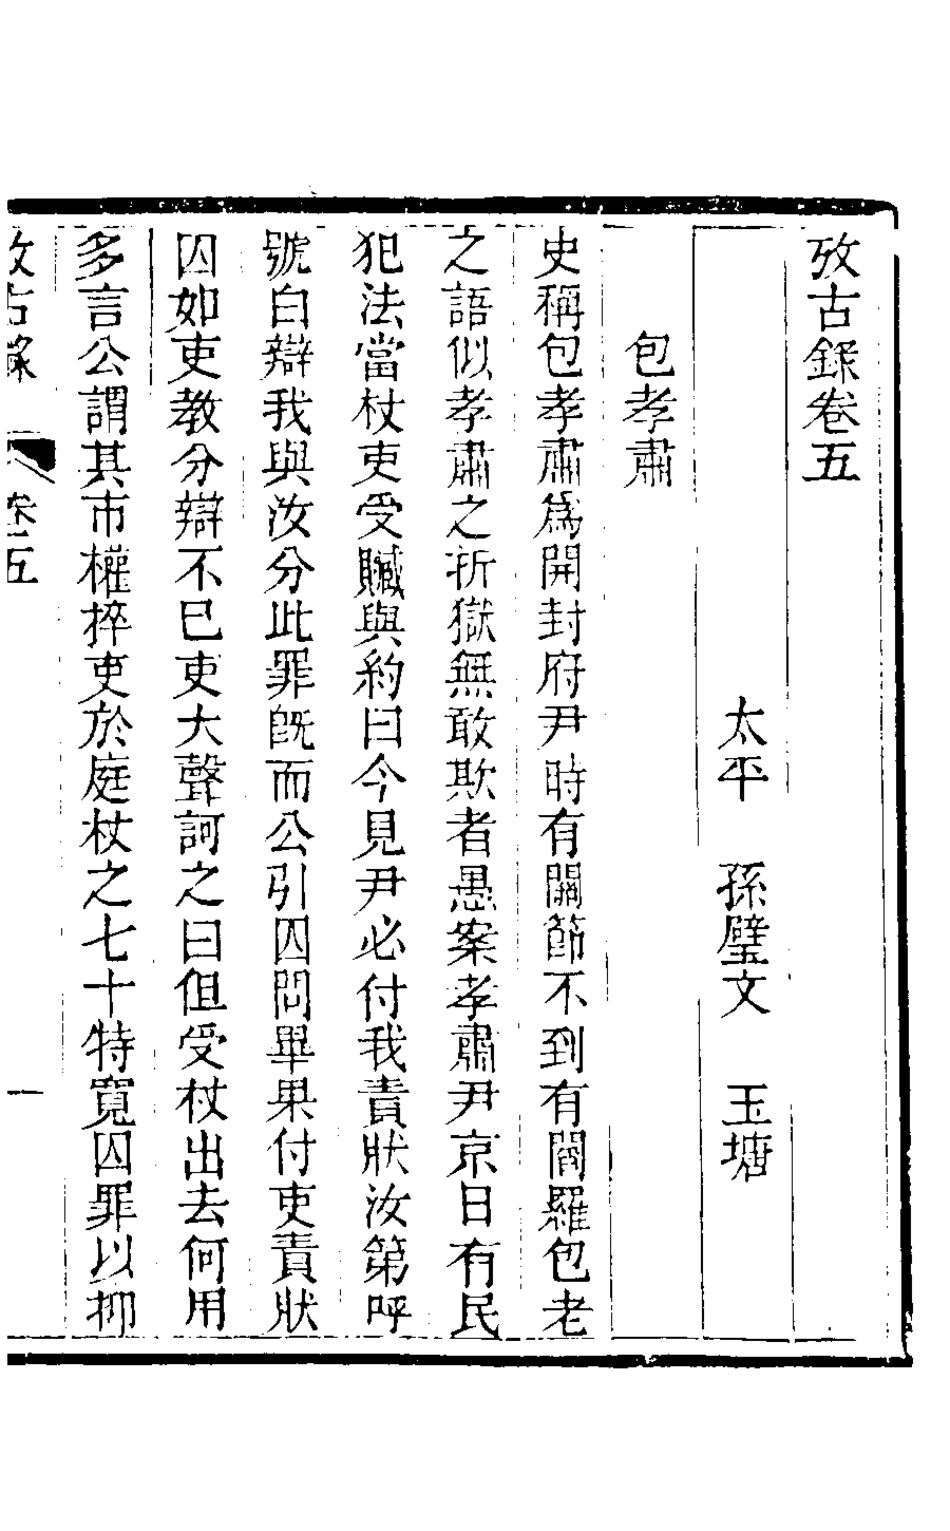 攷古錄卷五
太平　孫璧文　玉塘
包孝肅
史稱包孝肅爲開封府尹時有關節不到有閻羅包老
之語似孝肅之折獄無敢欺者愚案孝肅尹京日有民
犯法當杖吏受贓與約曰今見尹必付我責狀汝第呼
號白辯我與汝分此罪旣而公引囚問畢果付吏責狀
囚如吏教分辯不已吏大聲訶之曰但受杖出去何用
多言公謂其市權捽吏於庭杖之七十特寬囚罪以抑
攷古錄　卷五　一